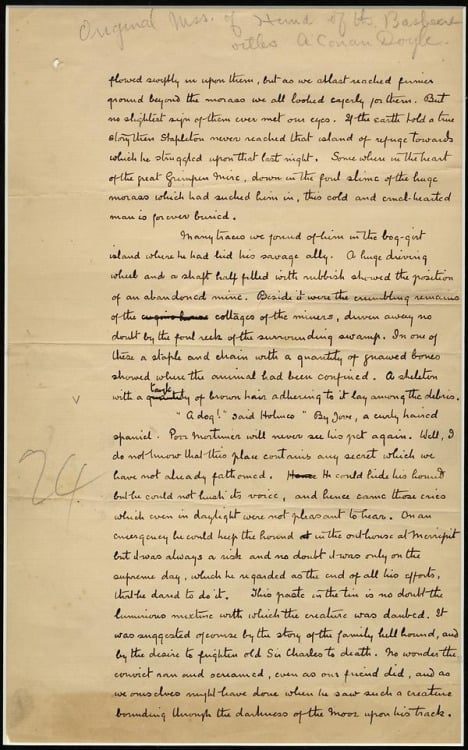 Original Mss. of Hound of the Baskervilles A Conan Doyle.
flowed swiftly in upon them, but as we at last reached firmer
ground beyond the morass we all looked eagerly for them. But
no slightest sign of them ever met our eyes. If the earth told a true
story then Stapleton never reached that island of refuge towards
which he struggled upon that last night. Somewhere in the heart
of the great Grimpen Mire, down in the foul slime of the huge
morass which had sucked him in, this cold and cruel-hearted
man is forever buried.
Many traces we found of him in the bog-girt
island where he had hid his savage ally. A huge driving
wheel and a shaft half filled with rubbish showed the position
of an abandoned mine. Beside it were the crumbling remains
of the cottages of the miners, driven away no
doubt by the foul reek of the surrounding swamp. In one of
these a staple and chain with a quantity of gnawed bones
showed where the animal had been confined. A skeleton
with a tangle of brown hair adhering to it lay among the debris.
"A dog!" said Holmes "By Jove, a curly haired
spaniel. Poor Mortimer will never see his pet again. Well, I
do not know that this place contains any secret which we
have not already fathomed. He could hide his hound
but he could not hush its voice, and hence came those cries
which even in daylight were not pleasant to hear. On an
emergency he could keep the hound in the outhouse at Merripit
but it was always a risk and no doubt it was only on the
supreme day, which he regarded as the end of all his efforts,
that he dared to do it. This paste in the tin is no doubt the
luminous mixture with which the creature was daubed. It
was suggested of course by the story of the family hell hound, and
by the desire to frighten old Sir Charles to death. No wonder the
convict ran and screamed, even as our friend did, and as
we ourselves might have done when he saw such a creature
bounding through the darkness of the Moor upon his track.
24